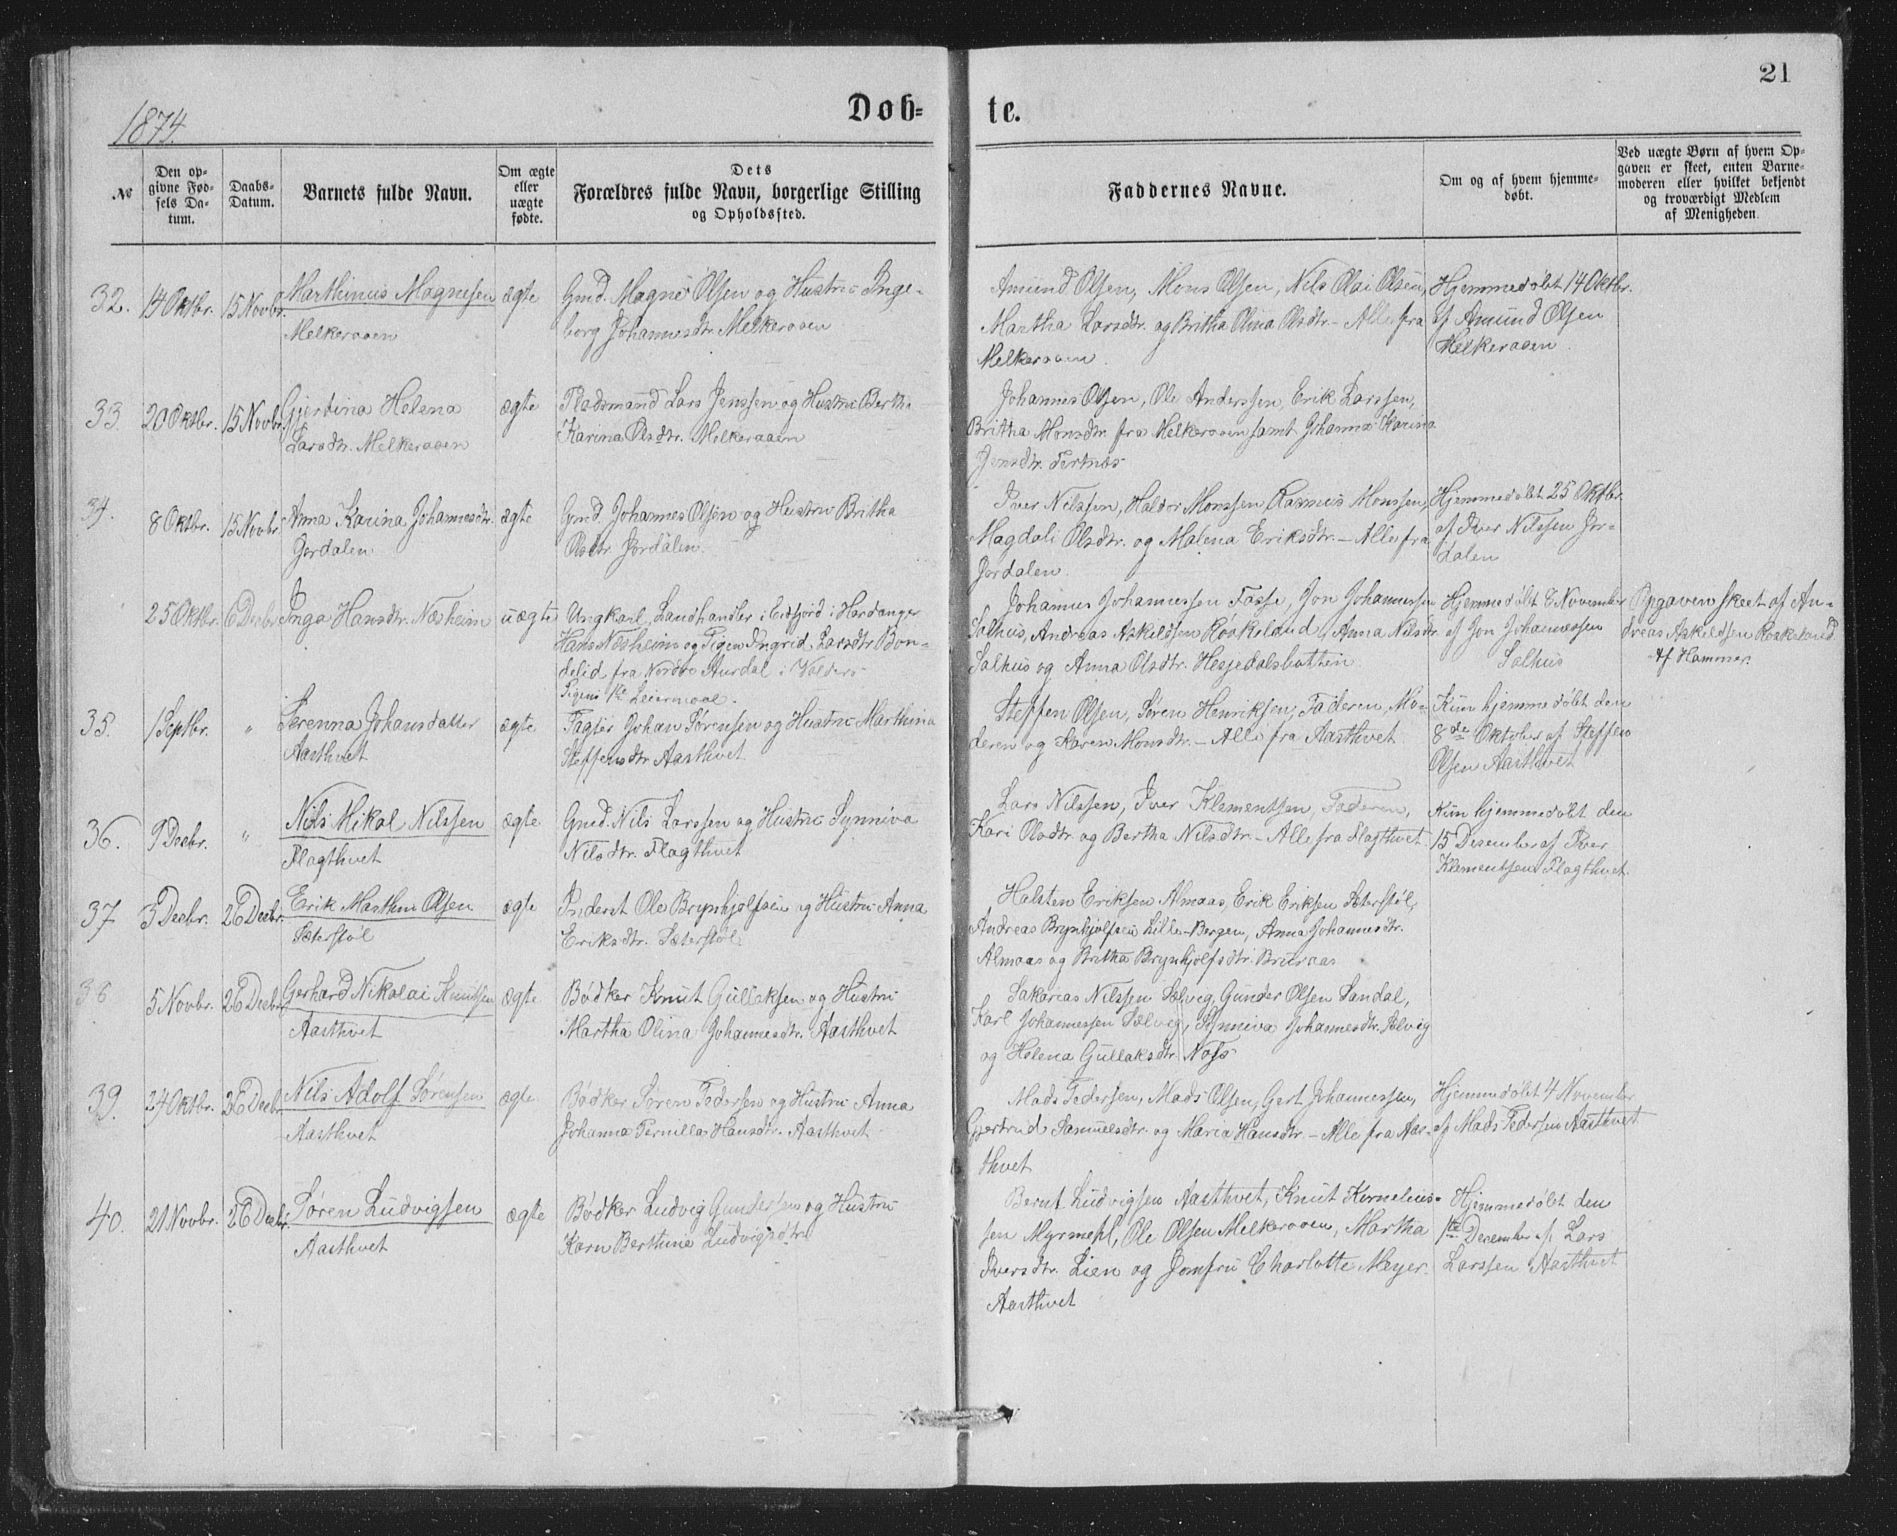 21
1874.
Døb- te.
№
Den op-
givne Fød-
sels Da-
tum.
Daabs-
Datum.
Barnets fulde Navn.
Om ægte
eller
uægte
fødte.
Dets
Forældres fulde Navn, borgerlige Stilling
og Opholdssted.
Faddernes Navne.
Om og af hvem hjemme-
døbt.
Ved uægte Børn af hvem Op-
gaven er skeet, enten Barne-
moderen eller hvilket bekjendt
og troværdigt Medlem
af Menigheden.
32. 14 Oktbr. 15 Novbr. Marthinus Magnesen
Melkeraaen
ægte
Gmd. Magne Olsen og Hustru Inge-
borg Johannesdtr. Melkeraaen
Amund Olsen, Mons Olsen, Nils Olai Olsen,
Martha Larsdtr. og Britha Olina Olsdtr. - Alle fra
Melkeraaen.
Hjemmedøbt 14 Oktbr.
af Amund Olsen
Melkeraaen.
33. 20 Oktbr. 15 Novbr. Gjertina Helena
Larsdtr. Melkeraaen
ægte
Pladsmand Lars Jenssen og Hustru Bertha
Karina Olsdtr. Melkeraaen
Johannes Olsen, Ole Anderssen, Erik Larssen,
Britha Monsdtr. fra Melkeraaen samt Johanna Karina
Jensdtr. Tertnæs
34. 8 Oktbr. 15 Novbr. Anna Karina Johannesdtr.
Jordalen
ægte
Gmd. Johannes Olsen og Hustru Britha
Olsdtr. Jordalen.
Iver Nilssen, Haldor Monssen, Rasmus Monssen,
Magdali Olsdtr. og Malena Eriksdtr. - Alle fra
Jordalen.
Hjemmedøbt 25 Oktbr.
af Iver Nilssen Jor-
dalen
25 Oktbr. 6 Decbr. Inga Hansdtr. Næsheim
uægte
Ungkarl, Landhandler i Eidfjord i Hardanger
Hans Næsheim og Pigen Ingrid Larsdtr. Bon-
delid fra Nordre Aurdal i Valders
Pigens 1ste Leiermaal.
Johannes Johannessen Fosse, Jon Johannessen
Salhus, Andreas Askildsen Røskeland, Anna Nilsdtr.
Salhus og Anna Olsdtr. Hesjedalsbotten
Hjemmedøbt 8 November
af Jon Johannessen
Salhus
Opgaven skeet af An-
dreas Askildsen Røskeland
af Hammer.
35. 1 Septbr. " Serenna Johansdatter
Aasthvet
ægte
Pagter Johan Sørensen og Hustru Marthina
Steffensdtr. Aasthvet
Steffen Olsen, Søren Henriksen, Faderen, Mo-
deren og Karen Monsdtr. - Alle fra Aasthvet
Kun hjemmedøbt den
8de Oktober af Steffen
Olsen Aasthvet
36. 9 Decbr. " Nils Mikal Nilssen
Flagthvet
ægte
Gmd. Nils Larssen og Hustru Synniva
Nilsdtr. Flagthvet
Lars Nilssen, Iver Klementsen, Faderen,
Kari Olsdtr. og Bertha Nilsdtr. - Alle fra Flagthvet
Kun hjemmedøbt den
15 Desember af Iver
Klementsen Flagthvet.
37 3 Decbr. 26 Decbr. Erik Marthin Olsen
Sæterstøl
ægte
Inderst Ole Brynhjolfsen og Hustru Anna
Eriksdtr. Sæterstøl.
Halsten Eriksen Almaas, Erik Eriksen Sæterstøl,
Andreas Brynhjolfsen Lille-Bergen, Anna Johannesdtr.
Almaas og Britha Brynhjolfsdtr. Bruraas
38 5 Novbr. 26 Decbr. Gerhard Nikolai Knutsen
Aasthvet
ægte
Bødker Knut Gullaksen og Hustru
Martha Olina Johannesdtr. Aasthvet
Sakarias Nilssen Sælvig, Gunder Olsen Sandal,
Karl Johannessen Sælvig, Synniva Johannesdtr. Sælvig
og Helena Gullaksdtr.
39. 24 Oktbr. 26 Decbr. Nils Adolf Sørensen
Aasthvet
ægte
Bødker Søren Pedersen og Hustru Anna
Johanna Pernilla Hansdtr. Aasthvet
Mads Pedersen, Mads Olsen, Gert Johannessen,
Gjertrud Samuelsdtr. og Maria Hansdtr. - Alle fra Aas-
thvet
Hjemmedøbt 4 November
af Mads Pedersen Aasthvet
40. 21 Novbr. 26 Decbr. Søren Ludvigsen
Aasthvet
ægte
Bødker Ludvig Gundersen og Hustru
Karn Berthine Ludvigsdtr.
Bernt Ludvigsen Aasthvet, Knut Kornelius-
sen Myrmehl, Ole Olsen Melkeraaen, Martha
Iversdtr. Lien og Jomfru Charlotte Meyer
Aasthvet
Hjemmedøbt den
1ste December af Lars
Larssen Aasthvet